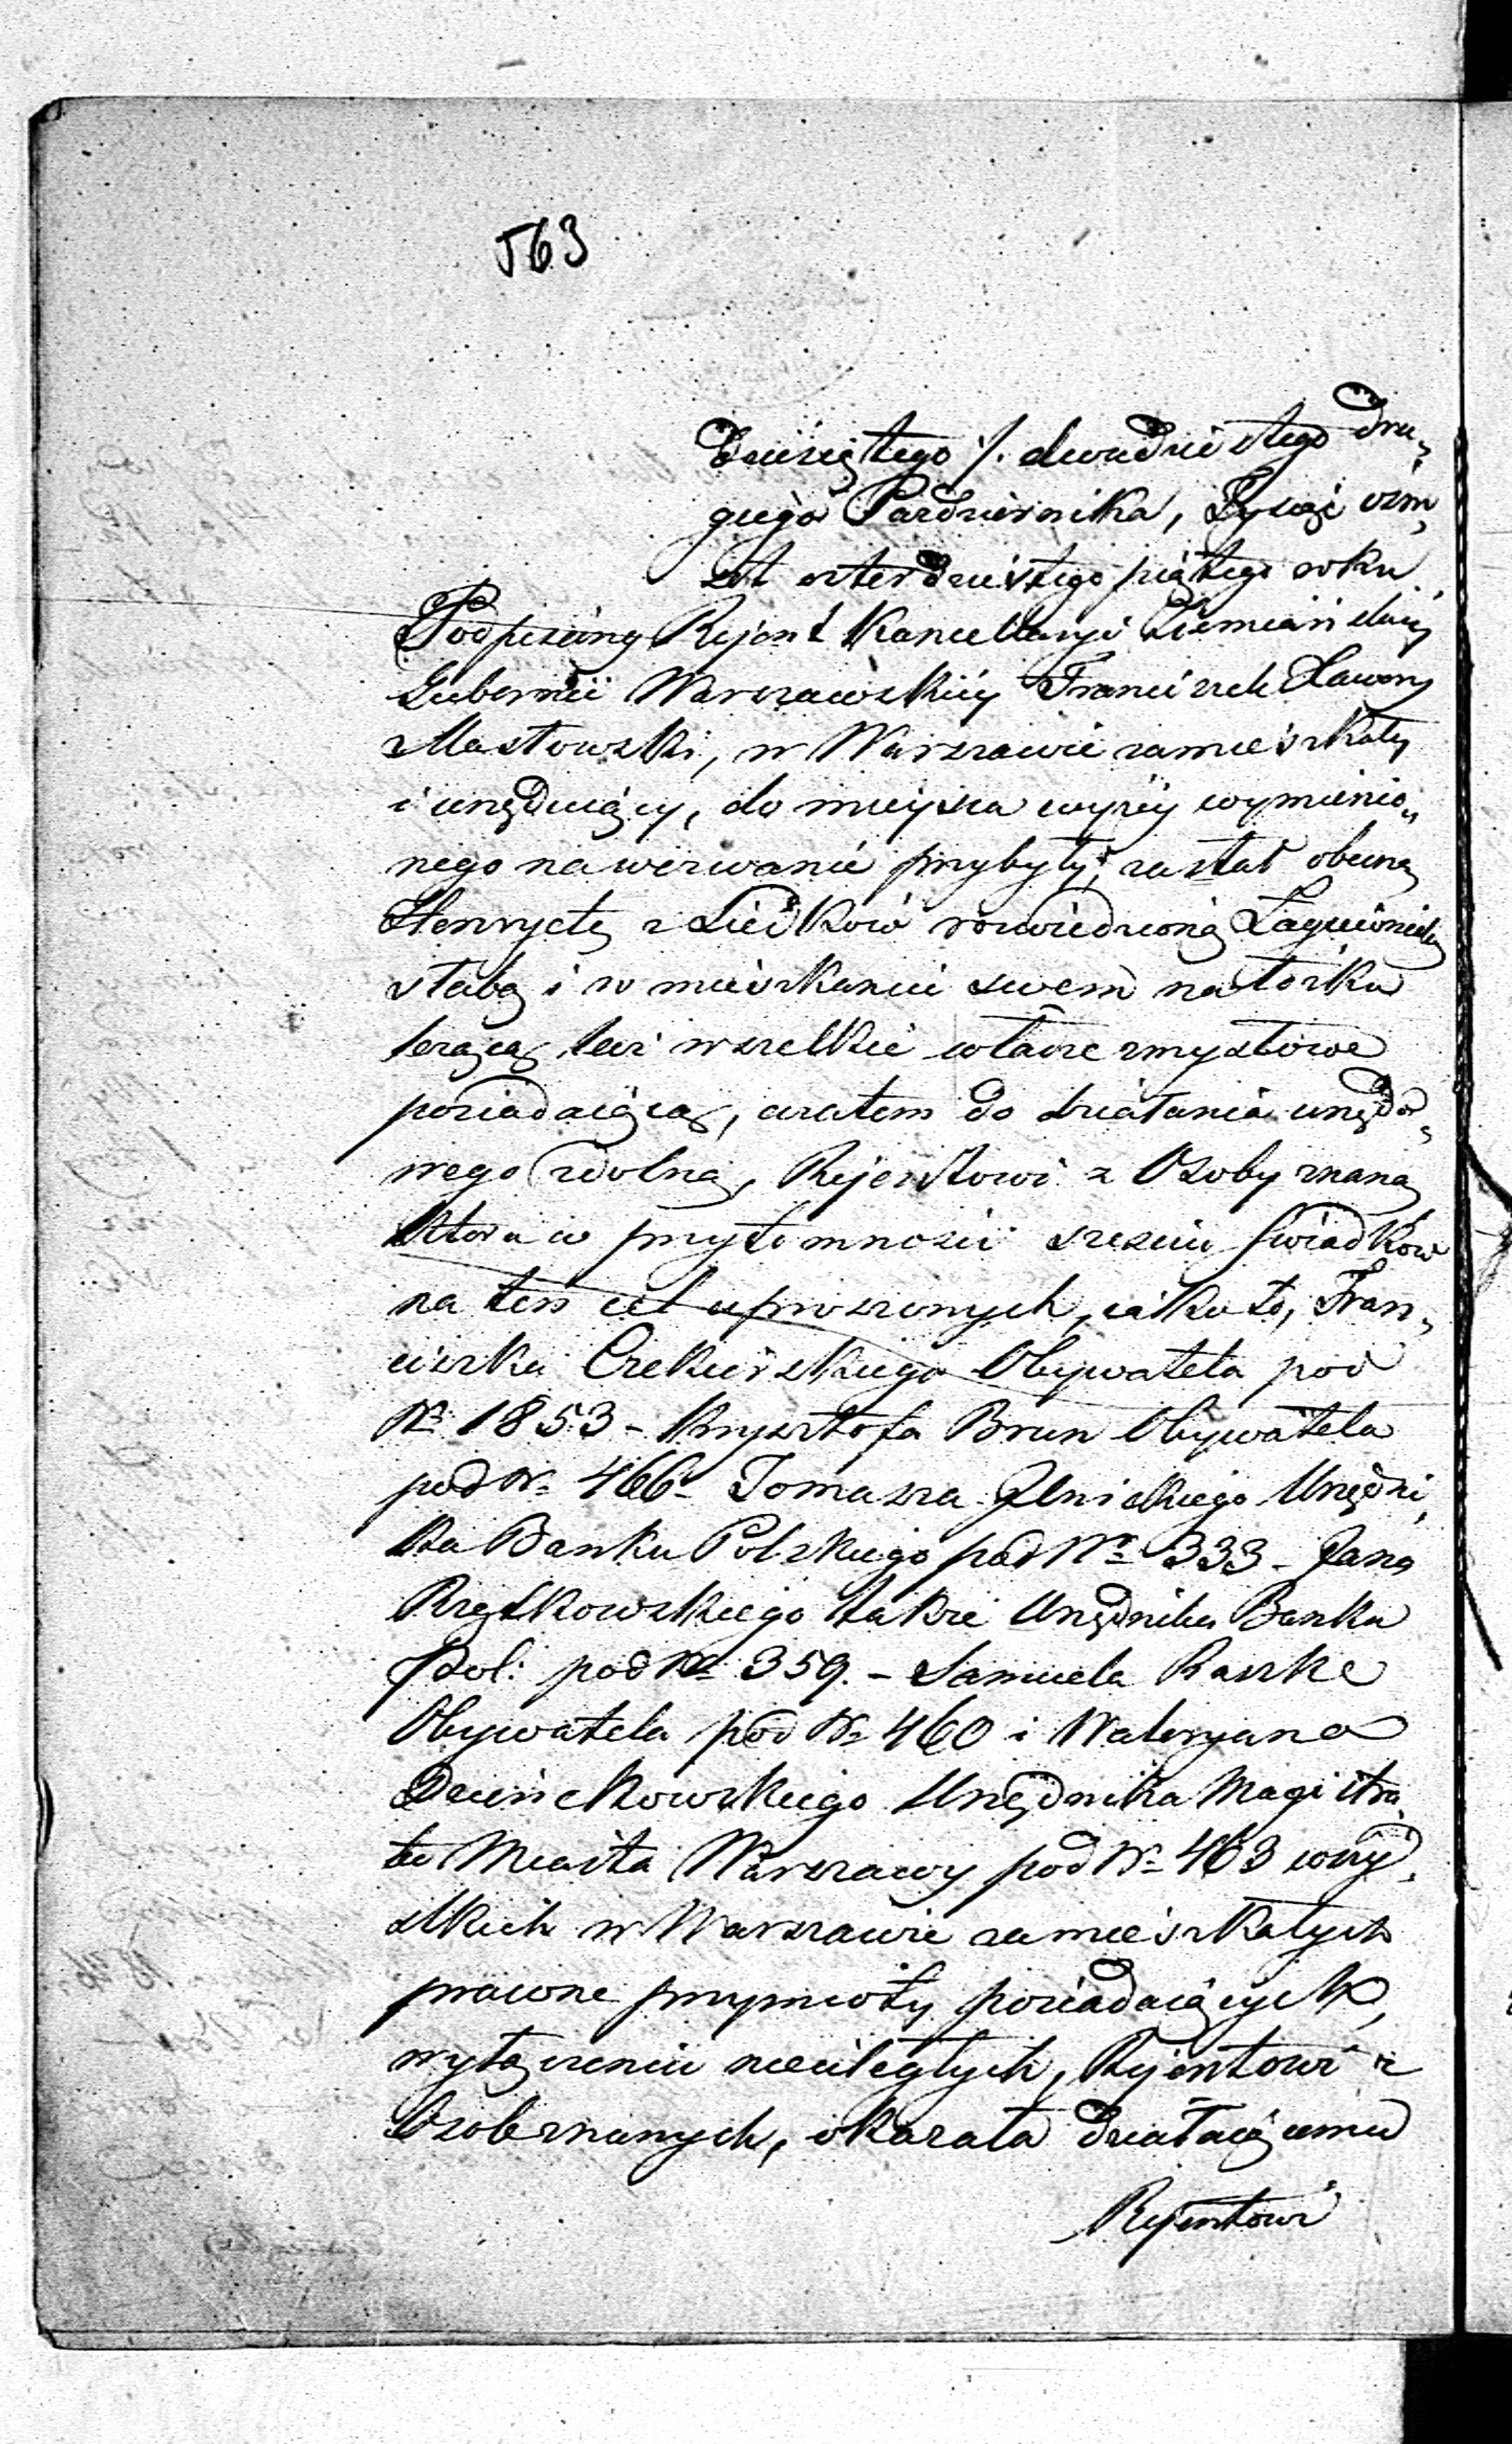 563
dziesiątego /. dwudziestego dru„
giego Pazdziernika, Tysiąc osm„
set czterdziestego piątego roku
Podpisany Rejent Kancellaryi Ziemiańskiéj
Gubernii Warszawskiéj Franciszek Xawery
Masłowski, w Warszawie zamieszkały
i urzęduiący, do mieysca wyżéy wymienio„
nego na wezwanie przybyły, zastał obecną
Henryetę z rozwiedzioną
słabą i w mieszkaniu swem na łóżku
leżącą lecz wszelkie władze zmysłowe
posiadaiącą, a zatem do działania urzędo„
wego zdolną, Rejentowi z Osoby znaną
która w przytomności sześciu świadków
na ten cel uproszonych, iako to, Fran„
ciszka Obywatela pod
Nr 1853 - Krysztofa Brun Obywatela
pod Nr 466 - Tomasza Urzędni„
ka Banku Polskiego pod Nr 333 - Jana
Rzętkowskiego także Urzędnika Banku
Pol: pod Nr 359. - Samuela Raszke
Obywatela pod Nr 460 i Waleryana
Urzędnika Magistra„
tu Miasta Warszawy pod Nr 463 wszy„
stkich w Warszawie zamieszkałych
prawne przymioty posiadaiących,
wyłączeniu nieuległych, Rejentowi z
Osób znanych, okazała działaiącemu
Rejentowi